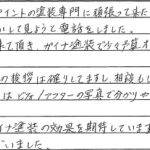 イントの塗装専門に頑張って来た
いして見ようと電話をしました。
来て頂き、ガイナ塗装で少々予算オ
の挨拶は確りしてますし、相談もし
はビフォ/アフターの写真で分かりや
イナ塗装の効果を期待しています
ざいました。